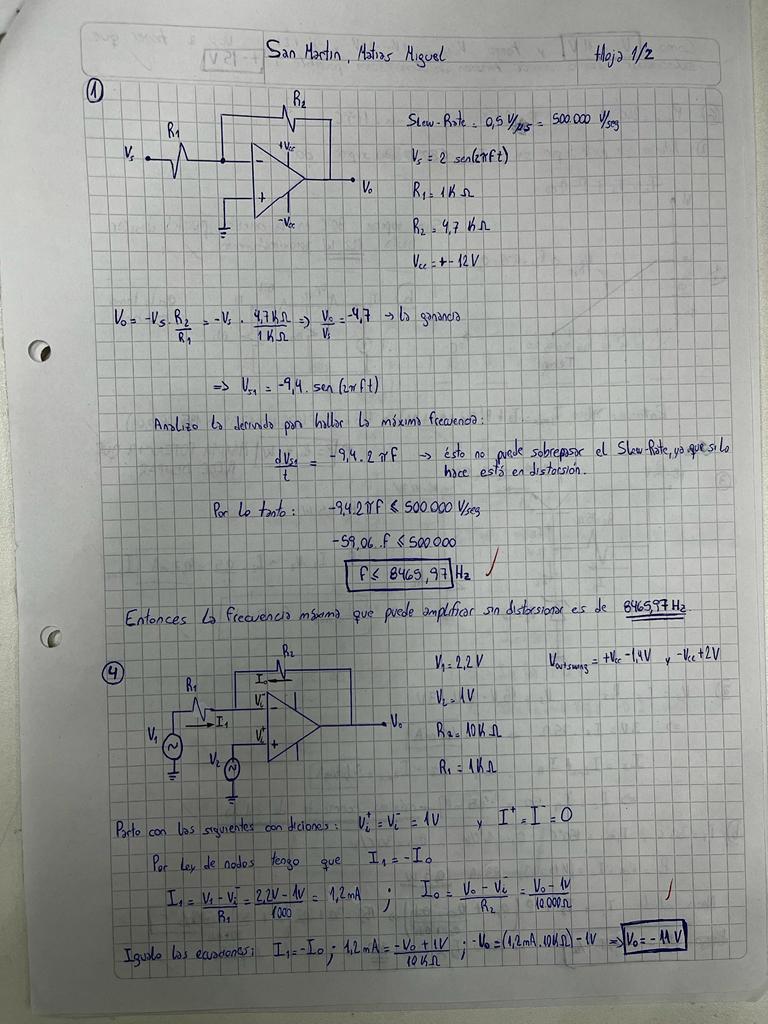 San Martin, Matias Miguel
Hoja 1/2
+- 15V
1
R1
R2
Vs
+Vcc
-
+
-Vcc
Vo
Slew-Rate = 0,5 V/μs = 500.000 V/seg
Vs = 2 sen(2πft)
R1 = 1KΩ
R2 = 4,7 KΩ
Vcc = +- 12V
Vo = -Vs . R2/R1 = -Vs . 4,7KΩ/1KΩ => Vo/Vs = -4,7 → la ganancia
=> Vs1 = -9,4 . sen(2πft)
Analizo la derivada para hallar la máxima frecuencia:
dVs1/t = -9,4 . 2πf → ésto no puede sobrepasar el Slew-Rate, ya que si lo
hace está en distorsión.
Por lo tanto: -9,4.2πf ≤ 500.000 V/seg
-59,06 . f ≤ 500.000
f ≤ 8465,97 Hz
Entonces la frecuencia máxima que puede amplificar sin distorsionar es de 8465,97 Hz
4
R1
R2
Io
Vi-
I1
Vi+
-
+
V1
V2
Vo
V1 = 2,2V
Voutswing = +Vcc -1,4V y -Vcc+2V
V2 = 1V
R2 = 10KΩ
R1 = 1KΩ
Parto con las siguientes condiciones: Vi+ = Vi- = 1V y I+ = I- = 0
Por Ley de nodos tengo que I1 = -Io
I1 = V1 - Vi-/R1 = 2,2V - 1V/1000 = 1,2mA ; Io = Vo - Vi-/R2 = Vo - 1V/10000Ω
Igualo las ecuaciones: I1 = -Io ; 1,2mA = -Vo + 1V/10KΩ ; -Vo = (1,2mA . 10KΩ) - 1V => Vo = -11V